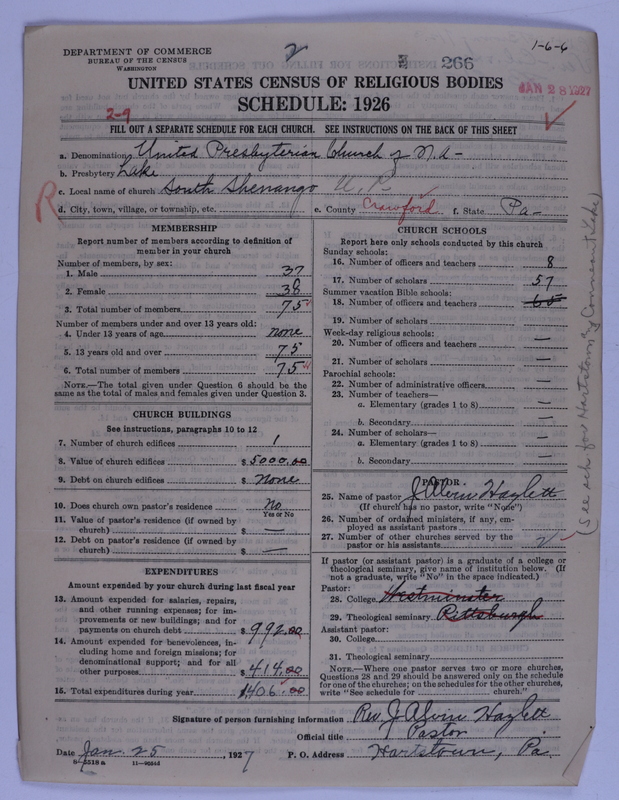 DEPARTMENT OF COMMERCE
BUREAU OF THE CENSUS
WASHINGTON
2
266
1-6-6
UNITED STATES CENSUS OF RELIGIOUS BODIES
JAN 28 1927
SCHEDULE: 1926
2-9
FILL OUT A SEPARATE SCHEDULE FOR EACH CHURCH. SEE INSTRUCTIONS ON THE BACK OF THIS SHEET
a. Denomination United Presbyterian Church of N.A-
b. Presbytery Lake
c. Local name of church South Shenango U.P-
R
d. City, town, village, or township, etc. e. County Crawford f. State Pa-
MEMBERSHIP
Report number of members according to definition of
member in your church
Number of members, by sex:
1. Male 37
2. Female 38
3. Total number of members 75
Number of members under and over 13 years old:
4. Under 13 years of age none
5. 13 years old and over 75
6. Total number of members 75
NOTE.—The total given under Question 6 should be the
same as the total of males and females given under Question 3.
CHURCH BUILDINGS
See instructions, paragraphs 10 to 12
7. Number of church edifices 1
8. Value of church edifices $ 5000.00
9. Debt on church edifices $ None
10. Does church own pastor's residence No
Yes or No
11. Value of pastor's residence (if owned by
church) $ —
12. Debt on pastor's residence (if owned by
church) $ —
EXPENDITURES
Amount expended by your church during last fiscal year
13. Amount expended for salaries, repairs,
and other running expenses; for im-
provements or new buildings; and for
payments on church debt $ 992.00
14. Amount expended for benevolences, in-
cluding home and foreign missions; for
denominational support; and for all
other purposes $ 414.00
15. Total expenditures during year $1406.00
CHURCH SCHOOLS
Report here only schools conducted by this church
Sunday schools:
16. Number of officers and teachers 8
17. Number of scholars 57
Summer vacation Bible schools:
18. Number of officers and teachers 65
19. Number of scholars —
Week-day religious schools:
20. Number of officers and teachers —
21. Number of scholars —
Parochial schools:
22. Number of administrative officers —
23. Number of teachers—
a. Elementary (grades 1 to 8) —
b. Secondary —
24. Number of scholars—
a. Elementary (grades 1 to 8) —
b. Secondary —
PASTOR
25. Name of pastor J Alvin Hazlett
(If church has no pastor, write "None")
26. Number of ordained ministers, if any, em-
ployed as assistant pastors
27. Number of other churches served by the
pastor or his assistants 2
If pastor (or assistant pastor) is a graduate of a college or
theological seminary, give name of institution below. (If
not a graduate, write "No" in the space indicated.)
Pastor:
28. College Westminster
29. Theological seminary Pittsburgh
Assistant pastor:
30. College
31. Theological seminary
NOTE.—Where one pastor serves two or more churches,
Questions 28 and 29 should be answered only on the schedule
for one of the churches; on the schedules for the other churches,
write "See schedule for church."
(See sch for Hartstown by Conneaut Lake)
Signature of person furnishing information Rev. J Alvin Hazlett
Official title Pastor
Date Jan. 25, 1927 P. O. Address Hartstown, Pa.